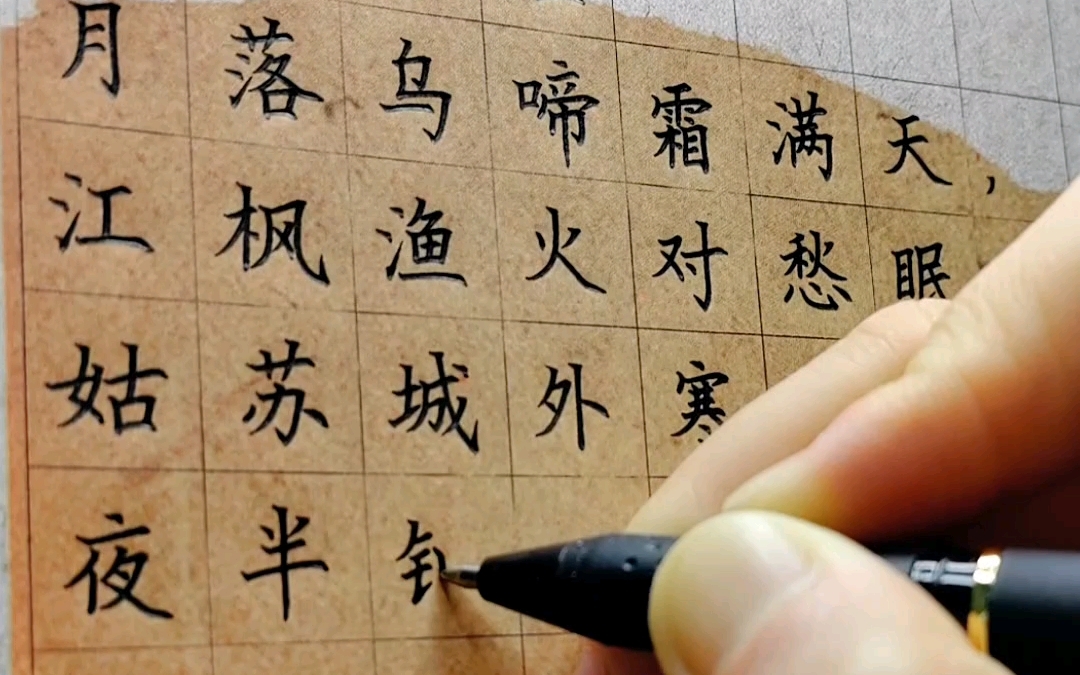 月落乌啼霜满天，
江枫渔火对愁眠
姑苏城外寒
夜半